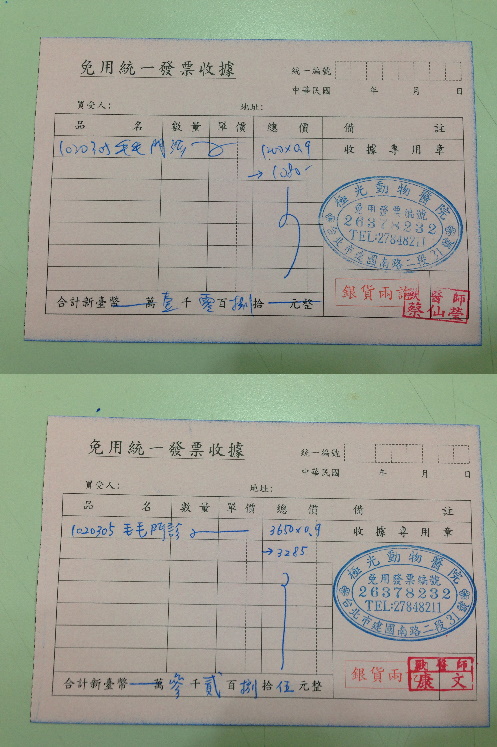 免用統一發票收據
統一編號
中華民國 年 月 日
買受人: 地址:
品 名 數量 單價 總 價 備 註
1020305 毛毛門診 1200x0.9 收據專用章
→1080
極光動物醫院
免用發票編號
26378232
TEL:27848211
台北市建國南路二段31
銀貨兩訖
獸醫師
蔡仙瑩
合計新臺幣 萬壹千零百捌拾 元整
免用統一發票收據
統一編號
中華民國 年 月 日
買受人: 地址:
品 名 數量 單價 總 價 備 註
1020305 毛毛門診 3650x0.9 收據專用章
→3285
極光動物醫院
免用發票編號
26378232
TEL:27848211
台北市建國南路二段31
銀貨兩
獸醫師
康文
合計新臺幣 萬參千貳百捌拾伍元整